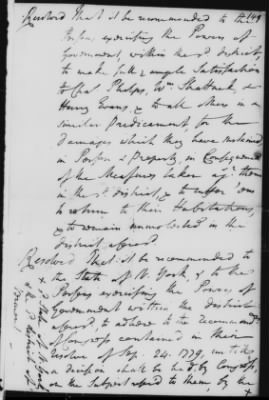 Resolved That it be recommended to the 149
Persons exercising the Powers of
Government, within the sd district,
to make full & ample Satisfaction
to Chas Phelps, Wm Shattuck, &
Henry Evans, & to all others in a
similar Predicament, for the
Damages which they have sustained
in Person & Property in Consequence
of the Measures taken agt them
in the sd district, & to suffer 'em
to return to their Habitations,
& to remain unmolested in the
district aforesd.
Resolved That it be recommended to
the State of N. York, & to the
Persons exercising the Powers of
Government within the district
aforesd, to adhere to the recommends
of Congress contained in their
resolve of Sep. 24. 1779, until
a division shall be had by Congress,
on the Subject referd to them, by the